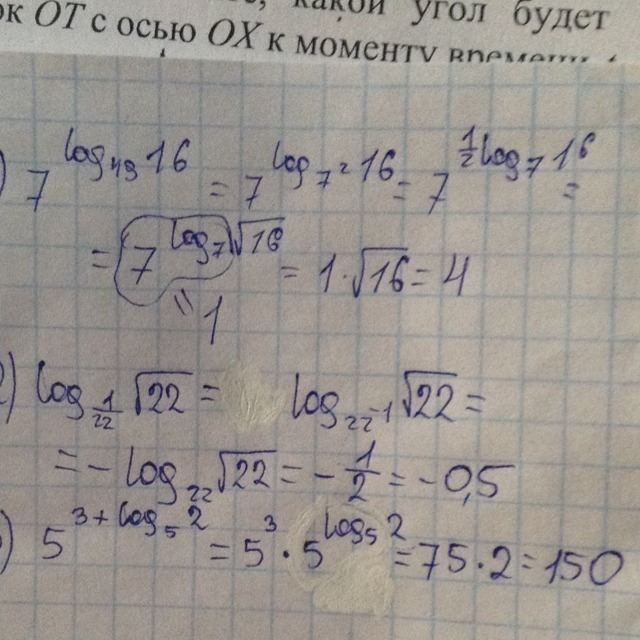 какой угол будет
ок OT с осью OX к моменту времени
) 7^{log_{49} 16} = 7^{log_{7^2} 16} = 7^{\frac{1}{2} log_7 16} =
= 7^{log_7 √16} = 1·√16 = 4
" 1
2) log_{\frac{1}{22}} √22 = log_{22^{-1}} √22 =
= - log_{22} √22 = - \frac{1}{2} = -0,5
) 5^{3 + log_5 2} = 5^3 · 5^{log_5 2} = 75·2 = 150